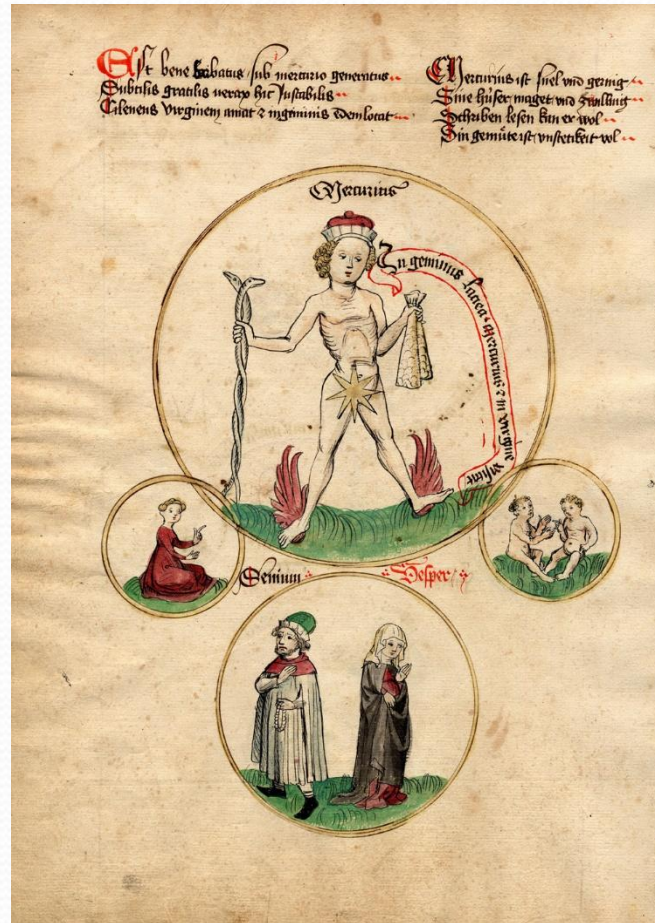 Est bene barbatus sub mercurio generatus
Subtilis gratilis verax hic Instabilis
Cilenens virginem amat & in geminis edem locat
Mercurius ist snel vnd geinig
Sine hüser maget vnd zwilling
Schriben lesen kan er wol
Sin gemüte ist vnstetikeit vol
Mercurius
In geminis mercurius & in virgine
Senium
Vesper